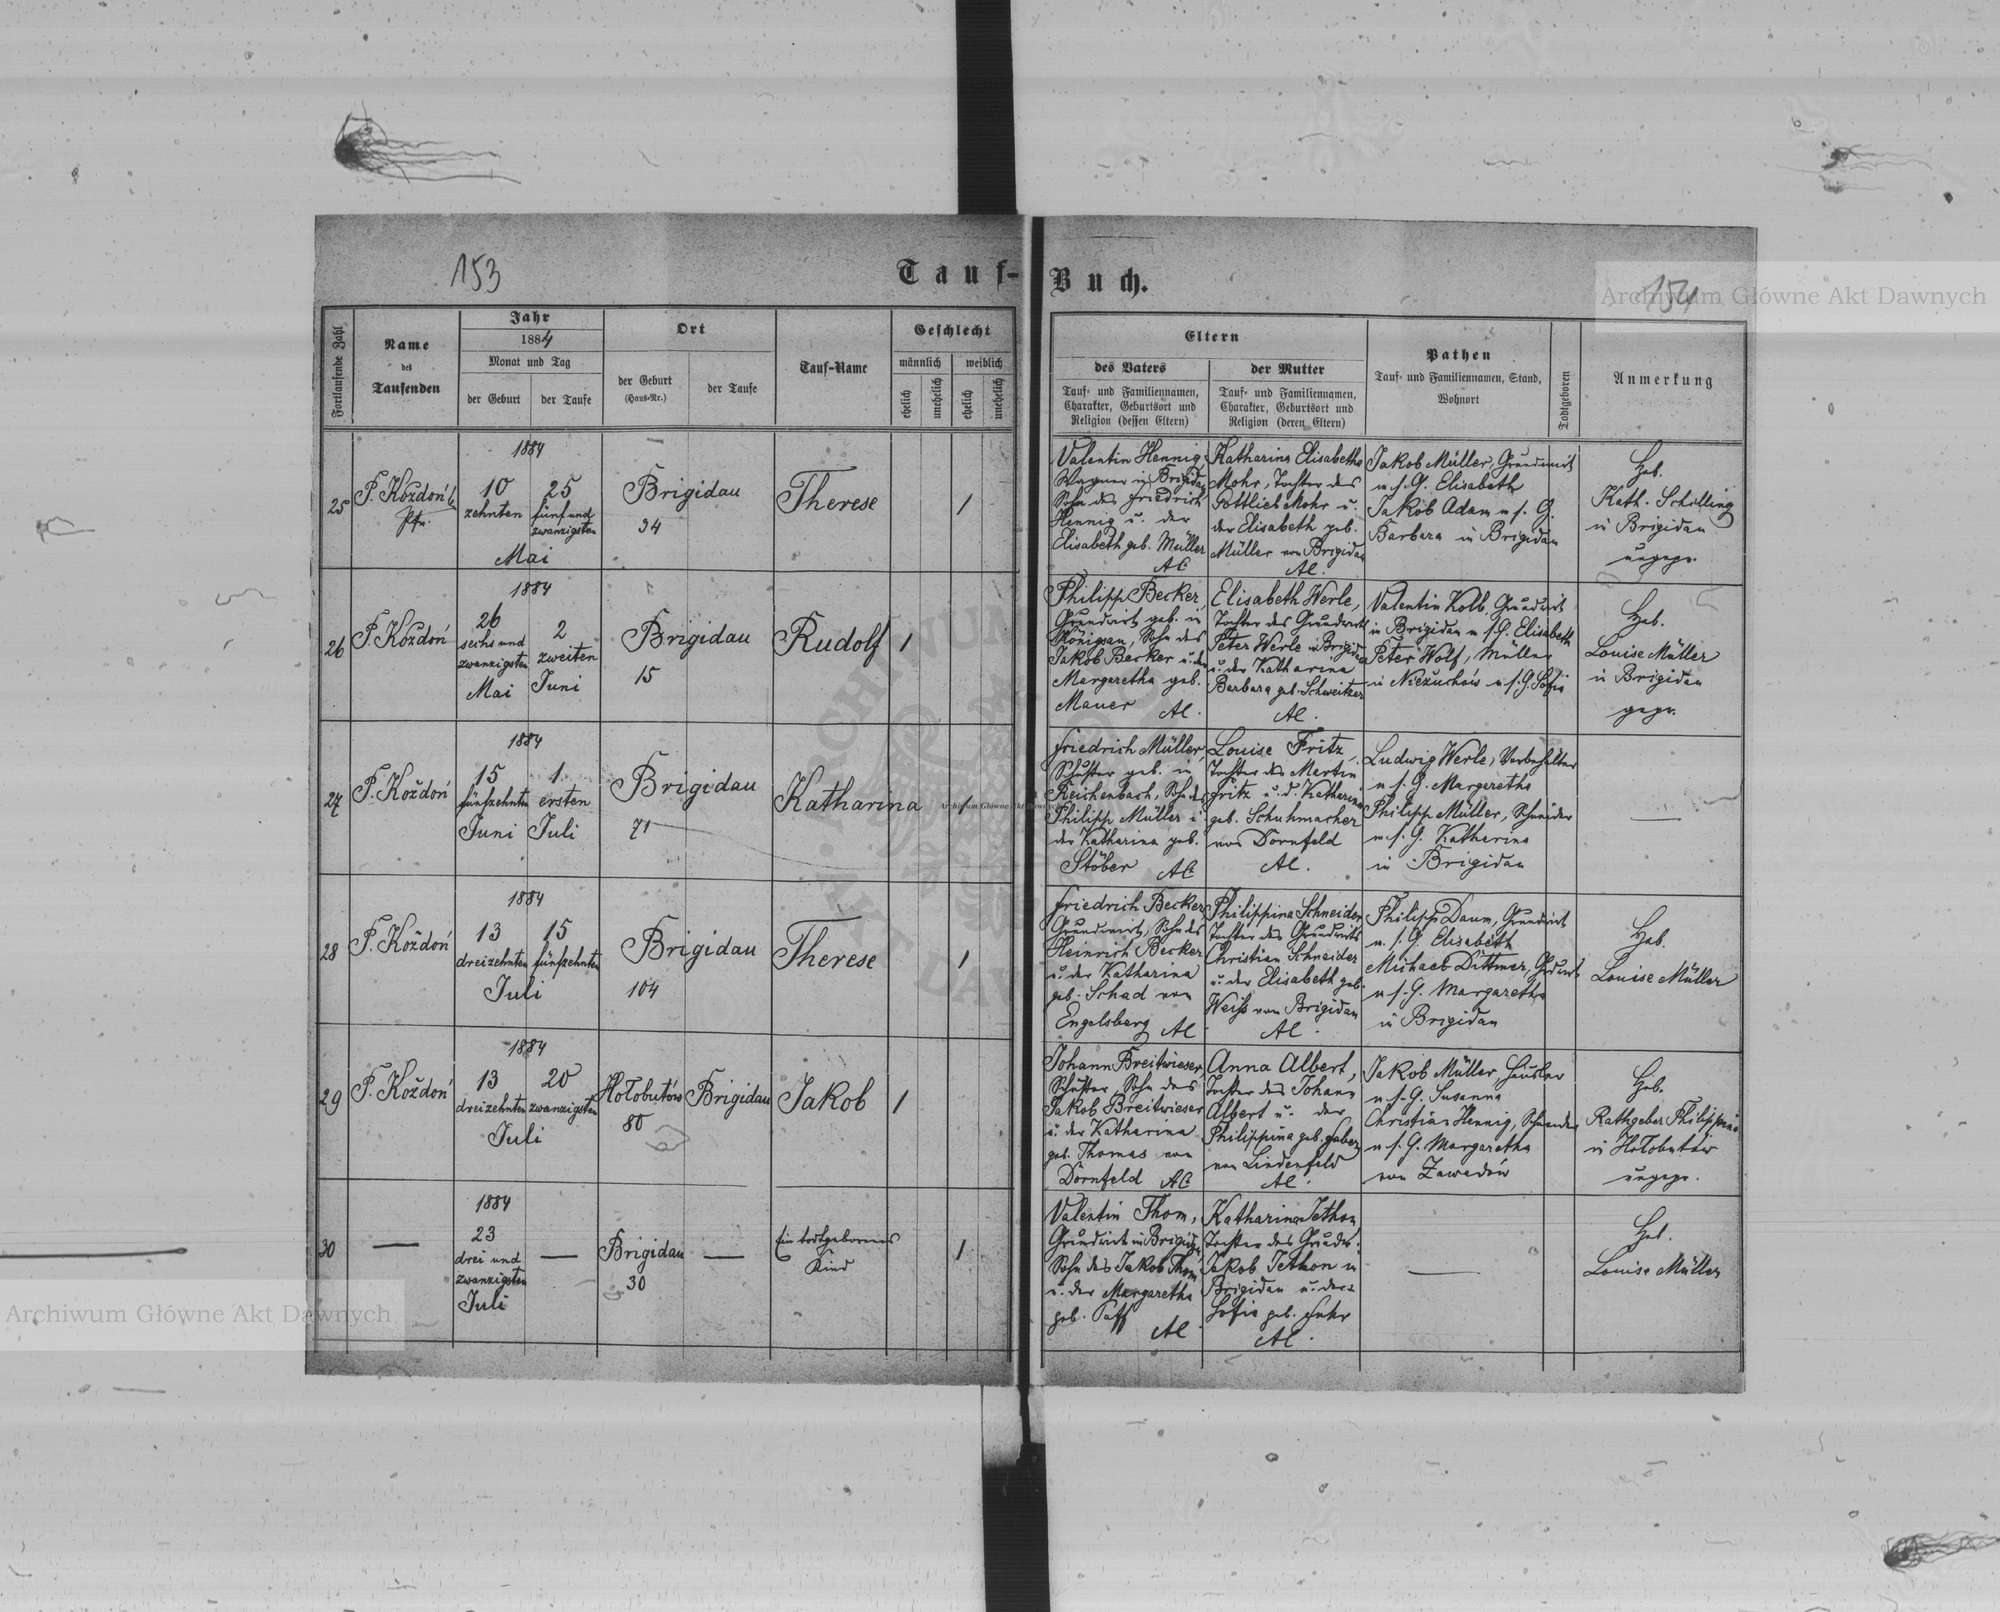 153
Tauf-
Buch.
154
Archiwum Główne Akt Dawnych
Fortlaufende Zahl
Name
des
Taufenden
Jahr
1884
Monat und Tag
der Geburt
der Taufe
Ort
der Geburt
(Haus-Nr.)
der Taufe
Tauf-Name
Geschlecht
männlich
weiblich
ehelich
unehelich
ehelich
unehelich
Eltern
des Vaters
Tauf- und Familiennamen,
Charakter, Geburtsort und
Religion (dessen Eltern)
der Mutter
Tauf- und Familiennamen,
Charakter, Geburtsort und
Religion (deren Eltern)
Pathen
Tauf- und Familiennamen, Stand,
Wohnort
Todtgeboren
Anmerkung
25
P. Koždoń
Pfr.
1884
10
zehnten
25
fünf und
zwanzigsten
Mai
Brigidau
34
Therese
1
Valentin Hennig
Wagner in Brigidau
Sohn des Friedrich
Hennig u. der
Elisabeth geb. Müller
AC
Katharina Elisabetha
Mohr, Tochter des
Gottlieb Mohr u.
der Elisabeth geb.
Müller von Brigidau
AC.
Jakob Müller, Grundwirt
u. s. G. Elisabeth
Jakob Adam u s. G.
Barbara in Brigidau
Heb.
Kath. Schilling
in Brigidau
ungepr.
26
P. Koždoń
1884
26
sechs und
zwanzigsten
Mai
2
zweiten
Juni
Brigidau
15
Rudolf
1
Philipp Becker
Grundwirt geb. in
Königsau, Sohn des
Jakob Becker u. der
Margaretha geb.
Mauer AC.
Elisabeth Werle,
Tochter des Grundwirts
Peter Werle in Brigidau
u. der Katharina
Barbara geb. Schweitzer
AC.
Valentin Kolb, Grundwirt
in Brigidau u s. G. Elisabeth
Peter Wolf, Müller
in Niezuchów u s. G. Sofia
Heb.
Louise Müller
in Brigidau
gepr.
27
P. Koždoń
1884
15
fünfzehnten
Juni
1.
ersten
Juli
Brigidau
71
Katharina
1
Friedrich Müller,
Schuster geb. in
Reichenbach, Sohn des
Philipp Müller u
der Katharina geb.
Stöber AC
Louise Fritz,
Tochter des Martin
Fritz u. d. Katharina
geb. Schuhmacher
von Dornfeld
AC.
Ludwig Werle, Vorbehälter
u s. G. Margaretha
Philipp Müller, Schneider
u. s. G. Katharina
in Brigidau
—
28
P. Koždoń
1884
13
dreizehnten
15
fünfzehnten
Juli
Brigidau
104
Therese
1
Friedrich Becker
Grundwirt, Sohn des
Heinrich Becker
u. der Katharina
geb. Schad von
Engelsberg AC
Philippina Schneider
Tochter des Grundwirts
Christian Schneider
u. der Elisabeth geb.
Weiß von Brigidau
AC.
Philipp Daum, Grundwirt
u. s. G. Elisabeth
Michael Dittmer, Grdwirt
u s. G. Margaretha
in Brigidau
Heb.
Louise Müller
29
P. Koždoń
1884
13
dreizehnten
20
zwanzigsten
Juli
Hołobutów
80
Brigidau
Jakob
1
Johann Breitwieser,
Schuster, Sohn des
Jakob Breitwieser
u. der Katharina
geb. Thomas von
Dornfeld AC
Anna Albert,
Tochter des Johann
Albert u. der
Philippina geb. Faber
von Lindenfeld
AC.
Jakob Müller, Häusler
u s. G. Susanna
Christian Hennig, Schneider
u s. G. Margaretha
von Zawadów
Heb.
Rathgeber Philippina
in Hołobutów
ungepr.
30
—
1884
23
drei und
zwanzigsten
Juli
—
Brigidau
30
—
Ein todtgeborenes
Kind
1
Valentin Thom,
Grundwirt in Brigidau
Sohn des Jakob Thom
u. der Margaretha
geb. Paff
AC.
Katharina Jethon
Tochter des Grundw.
Jakob Jethon in
Brigidau u. der
Sofia geb. Fuhr
AC.
—
Heb.
Louise Müller
Archiwum Główne Akt Dawnych
Archiwum Główne Akt Dawnych